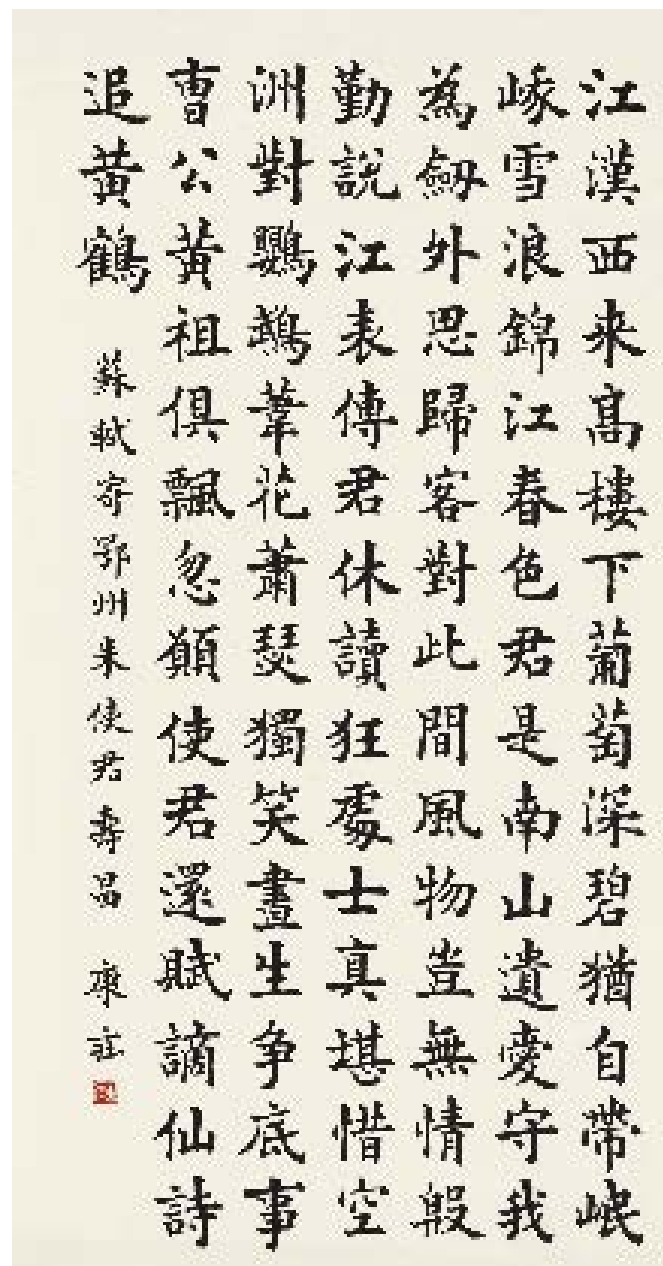 江漢西来高樓下葡萄深碧猶自帶岷
峨雪浪錦江春色君是南山遺愛守我
為劒外思歸客對此間風物豈無情殷
勤說江表傳君休讀狂處士真堪惜空
洲對鸚鵡葦花蕭瑟獨笑書生争底事
曹公黄祖俱飄忽願使君還賦謫仙詩
追黄鶴
蘇軾寄鄂州朱使君壽昌 康